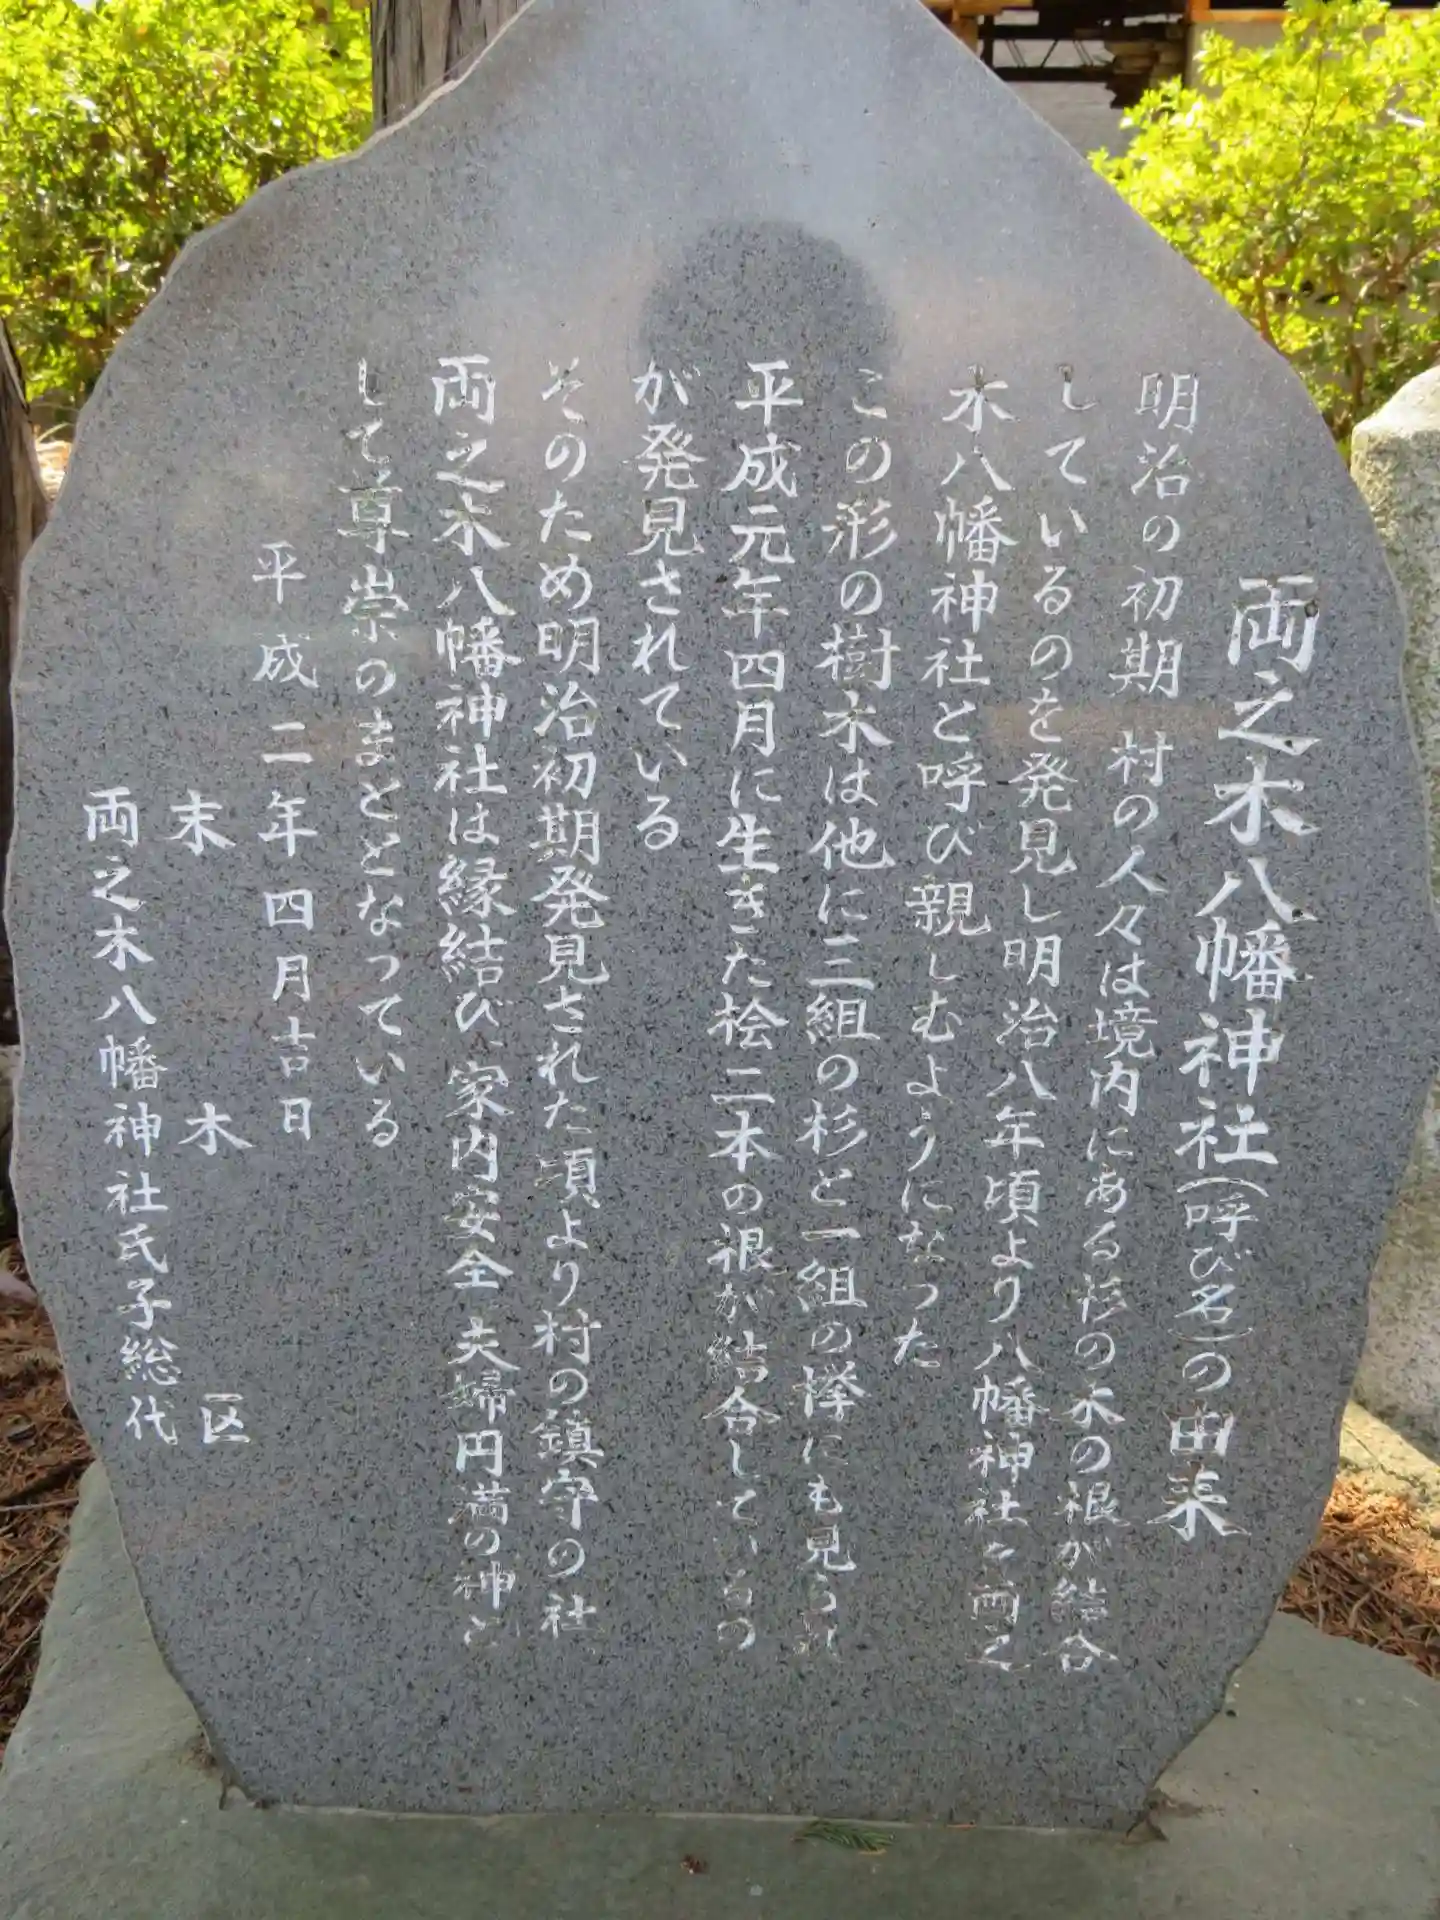 両之木八幡神社(呼び名)の由来
明治の初期 村の人々は境内にある杉の木の根が結合
しているのを発見し明治八年頃より八幡神社を両之
木八幡神社と呼び親しむようになった
この形の樹木は他に三組の杉と一組の欅にも見られ
平成元年四月に生きた桧二本の根が結合しているの
が発見されている
そのため明治初期発見された頃より村の鎮守の社
両之木八幡神社は縁結び、家内安全 夫婦円満の神と
して尊崇のまととなっている
平成二年四月吉日
末木区
両之木八幡神社氏子総代